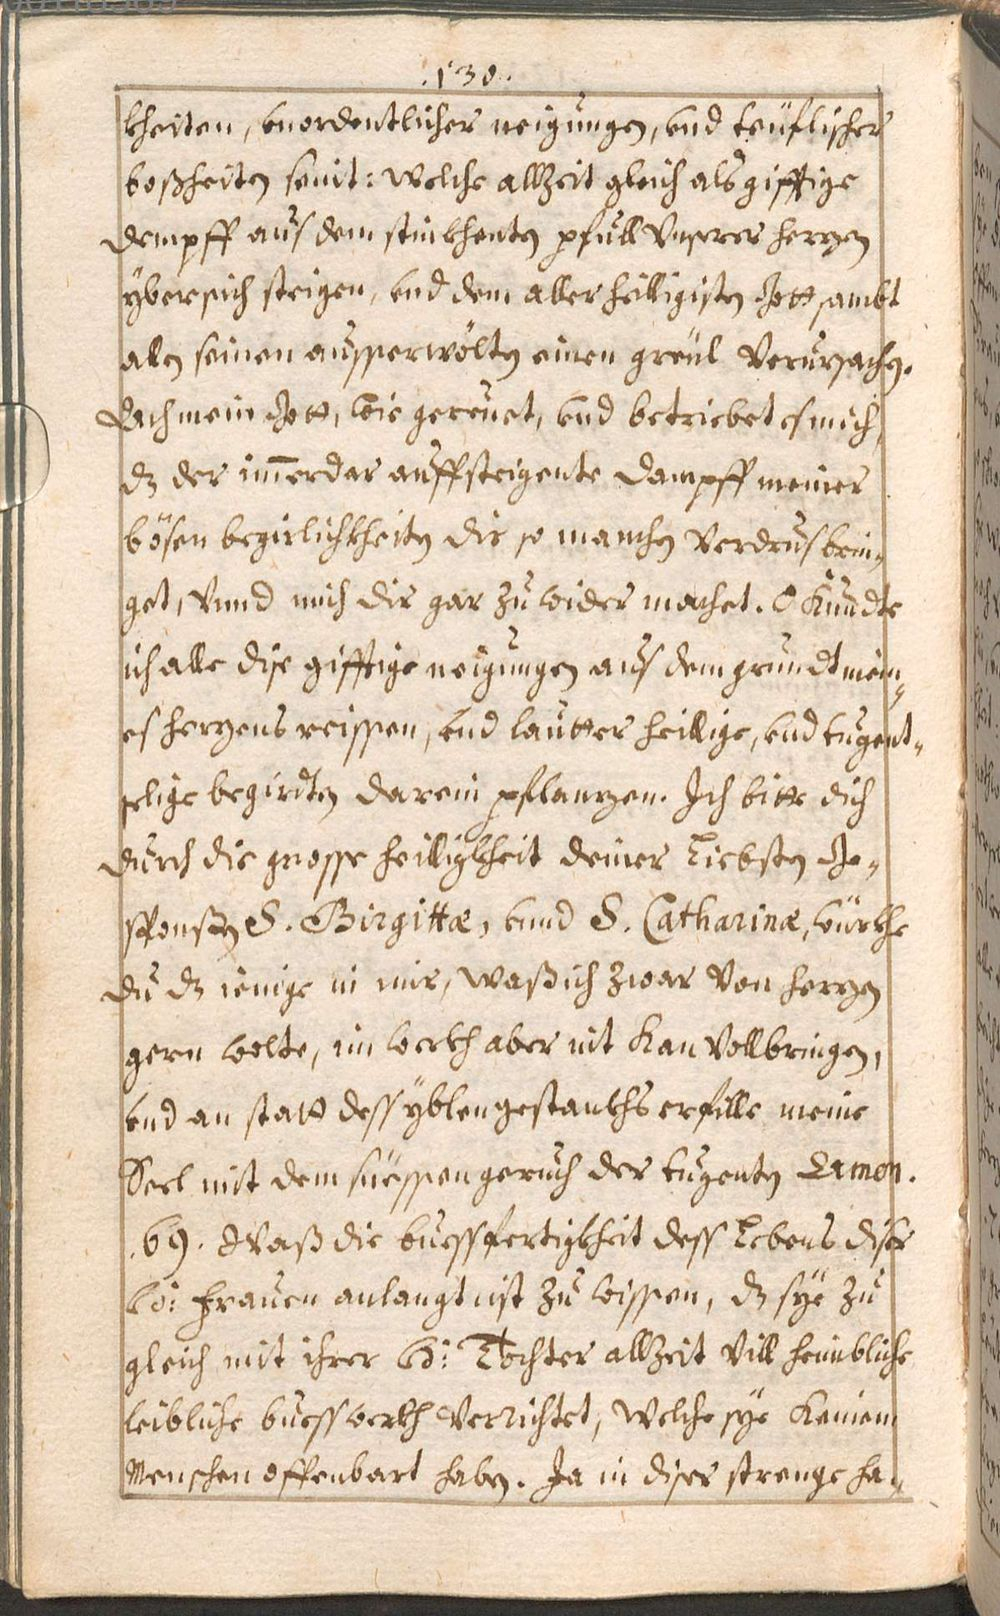 .130.
kheiten, vnordentlicher neigungen, vnd teüflischer
boßheiten seint: welche allzeit gleich als gifftige
dempff aus dem stinkhenten pfull Vnseres herzen
ybersich steigen, vnd dem aller heilligisten Gott sambt
allen seinen ausserwölten einen greül Verursachen.
Ach mein Gott, wie gereuet, vnd betriebet es mich,
dz der im̄erdar auffsteigente dampff meiner
bösen begirlichkheiten dir so manchen Verdrus brin„
get, Vnnd mich dir gar zu wider machet. O kundte
ich alle dise gifftige neigungen aus dem grundt mein„
es herzens reissen, vnd lautter heillige, vnd tugent„
selige begirdten darein pflanzen. Ich bitte dich
durch die grosse heilligkheit deiner Liebsten Ge„
sponsen S. Birgittæ, vnnd S. Catharinæ, würkhe
du dz ienige in mir, waß ich zwar Von herzen
gern wolte, im werkh aber nit kan Vollbringen,
vnd an statt dess yblen gestankhs erfille meine
Seel mit dem süessen geruch der tugenten Amen.
.69. Waß die buessfertigkheit dess Lebens diser
H: Frauen anlangt ist zu wissen, dz sye zu
gleich mit ihrer H: Tochter allzeit Vill heimbliche
leibliche buesswerkh Verrichtet, welche sye keinem
Menschen offenbart haben. Ja in diser strenge ha„